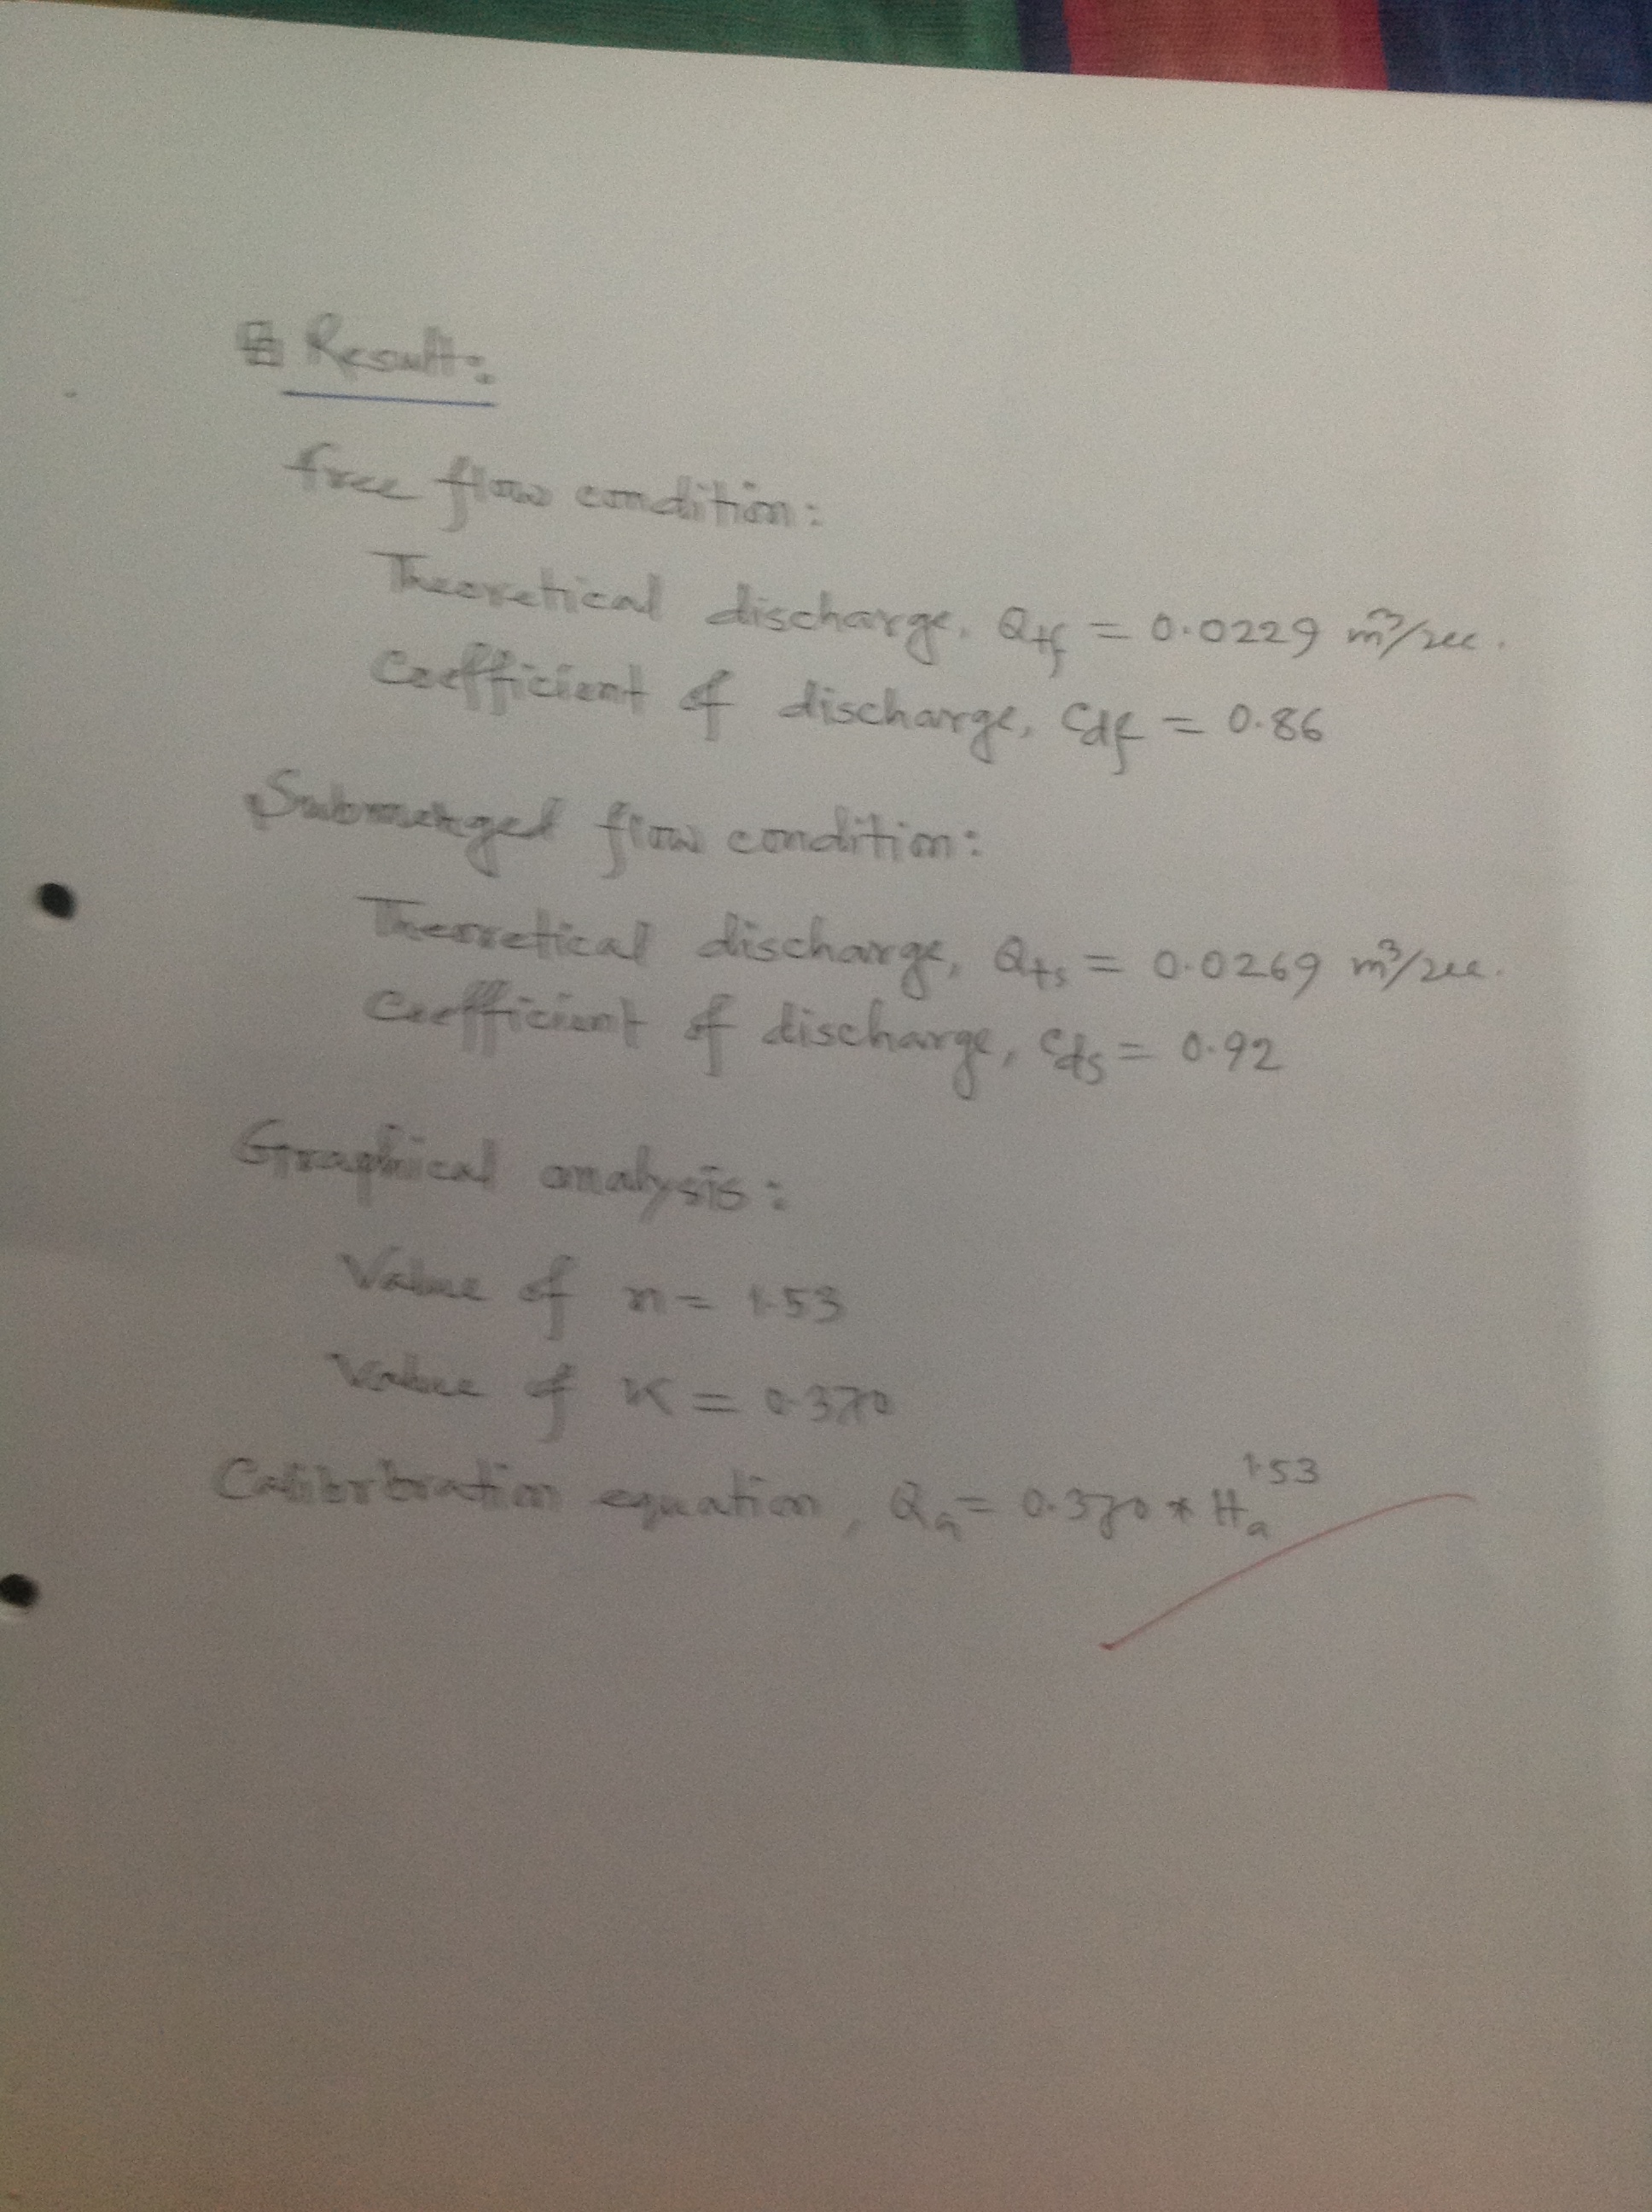 Result:
free flow condition:
Theoretical discharge, Qtf = 0.0229 m³/sec.
Coefficient of discharge, Cdf = 0.86
Submerged flow condition:
Theoretical discharge, Qts = 0.0269 m³/sec.
Coefficient of discharge, Cds = 0.92
Graphical analysis:
Value of n = 1.53
Value of K = 0.370
Calibrbration equation, Qa = 0.370 * Ha^1.53